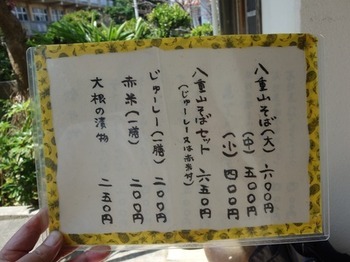 八重山そば(大) 六〇〇円
(中) 五〇〇円
(小) 四〇〇円
八重山そばセット 六五〇円
(じゅーしー又は赤米付)
じゅーしー(一膳) 二〇〇円
赤米(一膳) 二〇〇円
大根の漬物 二五〇円